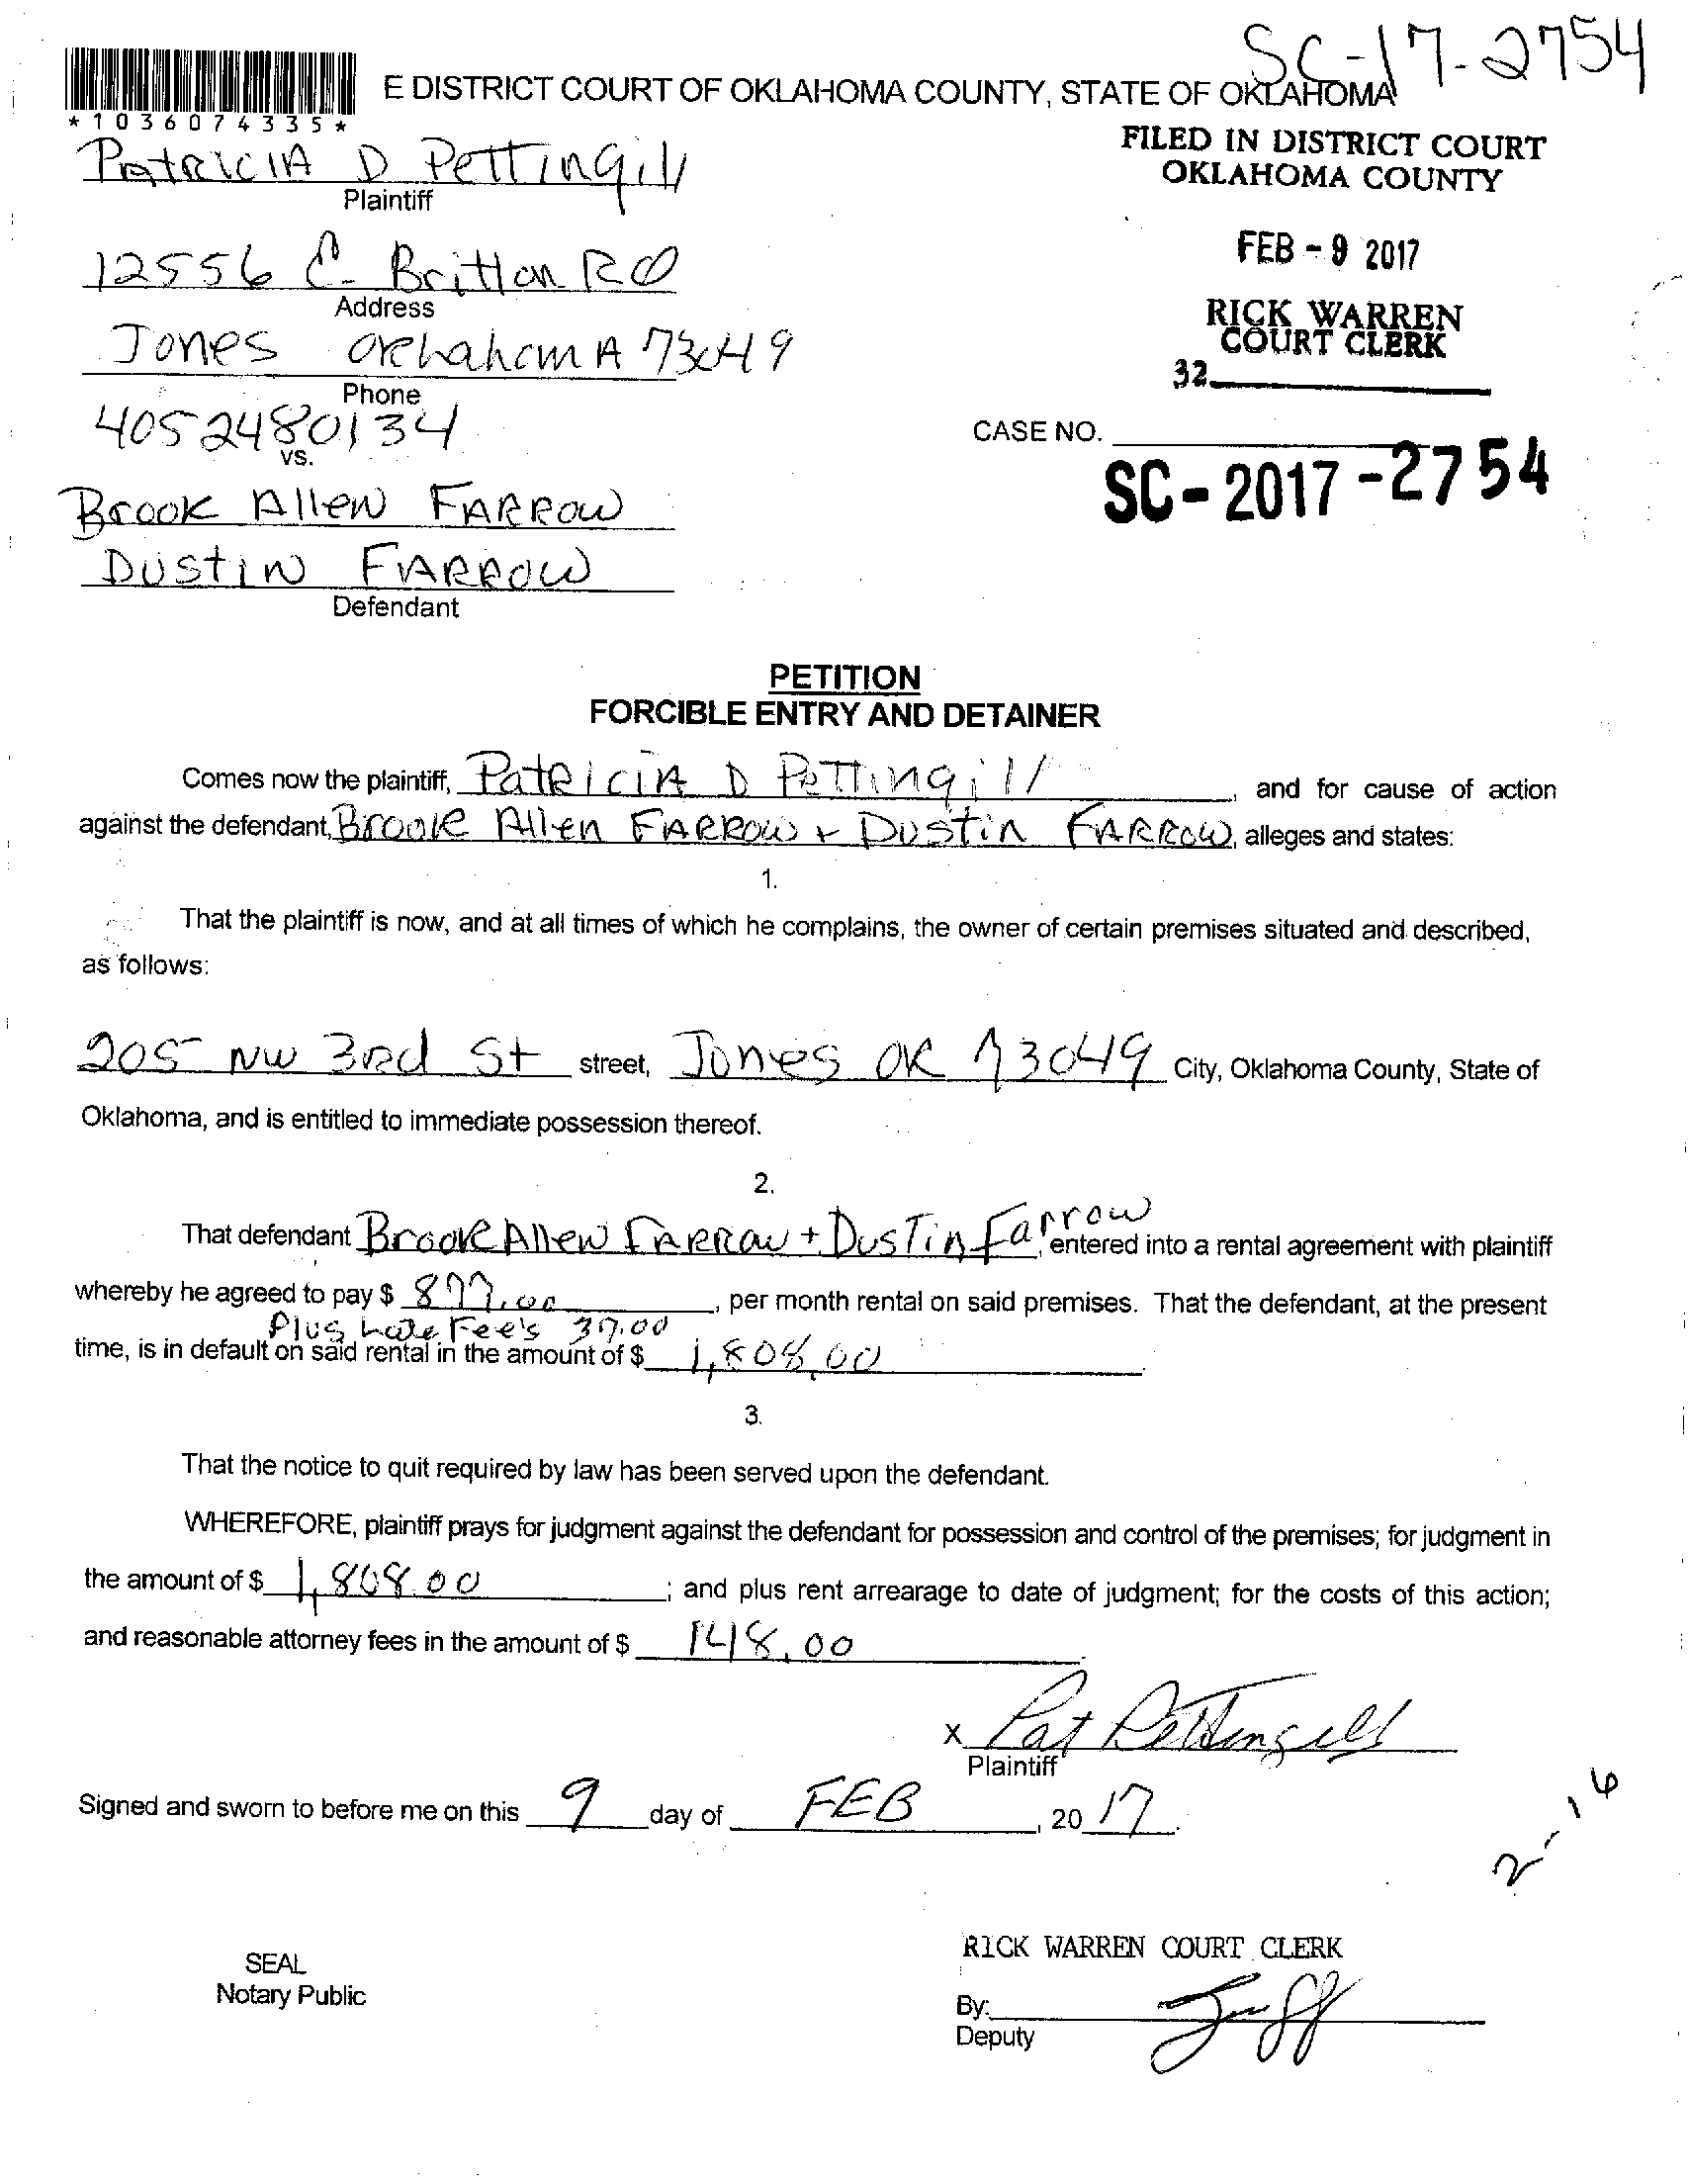 SC-17-2754
E DISTRICT COURT OF OKLAHOMA COUNTY, STATE OF OKLAHOMA
*1036074335*
FILED IN DISTRICT COURT
OKLAHOMA COUNTY
PatRICIA D PettingIll
Plaintiff
FEB - 9 2017
12556 E. Britton RD
Address
RICK WARREN
COURT CLERK
Jones OklahomA 73049
Phone
32
405 2480134
vs.
CASE NO.
SC-2017-2754
Brook Allen FARROW
DUStIN FARROW
Defendant
PETITION
FORCIBLE ENTRY AND DETAINER
Comes now the plaintiff, PatRICIA D PetTingill, and for cause of action
against the defendant, Brook Allen FARROW + DUStin FARROW, alleges and states:
1.
That the plaintiff is now, and at all times of which he complains, the owner of certain premises situated and described,
as follows:
205 NW 3Rd St street, Jones OK 73049 City, Oklahoma County, State of
Oklahoma, and is entitled to immediate possession thereof.
2.
That defendant Brook Allen FARROW + DusTin Farrow, entered into a rental agreement with plaintiff
whereby he agreed to pay $ 877.00, per month rental on said premises. That the defendant, at the present
Plus Late Fee's 37.00
time, is in default on said rental in the amount of $ 1,808.00
3.
That the notice to quit required by law has been served upon the defendant.
WHEREFORE, plaintiff prays for judgment against the defendant for possession and control of the premises; for judgment in
the amount of $ 1,808.00; and plus rent arrearage to date of judgment; for the costs of this action;
and reasonable attorney fees in the amount of $ 148.00
X Pat Pettingill
Plaintiff
Signed and sworn to before me on this 9 day of FEB, 2017.
2-16
RICK WARREN COURT CLERK
SEAL
Notary Public
By:
Deputy